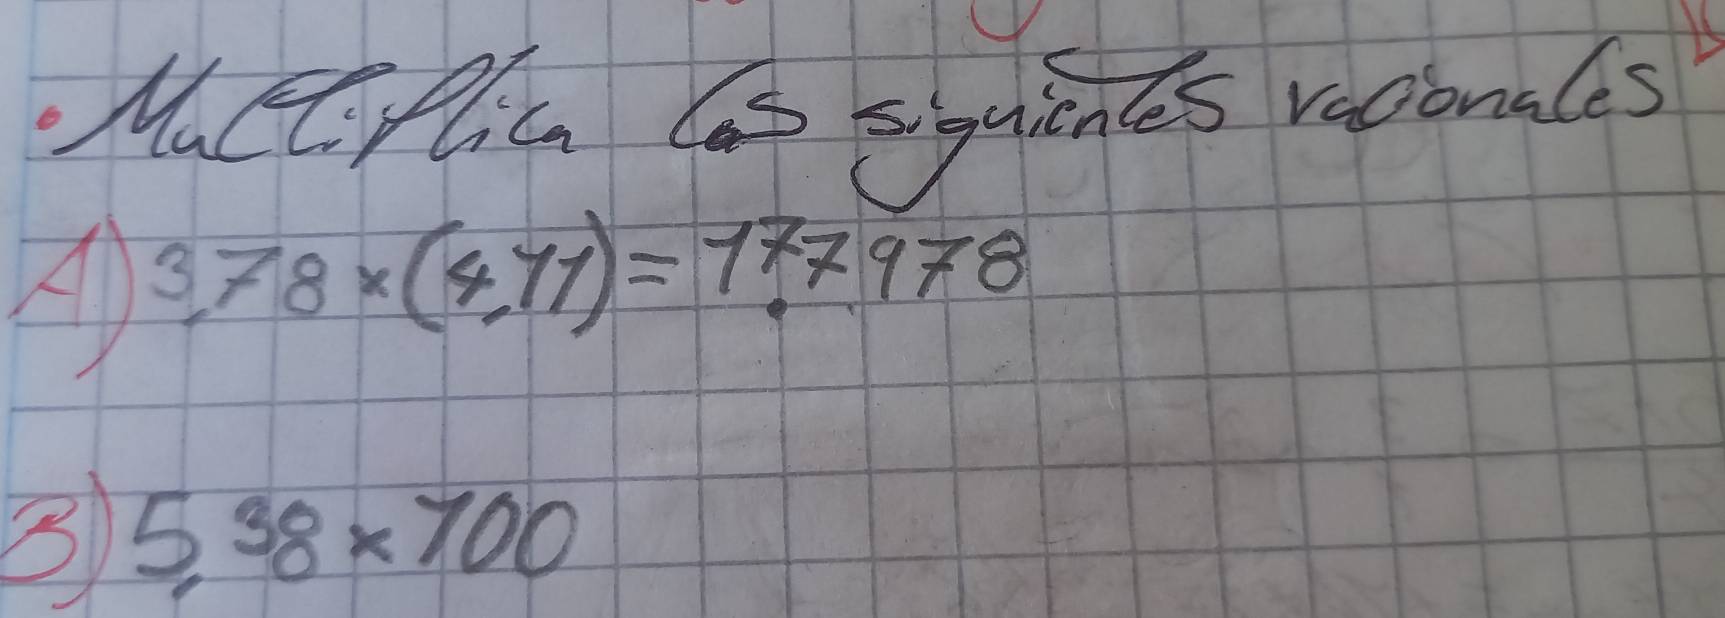 • Multiplica los siguientes racionales
A) 3,78 x (4,11) = 17.7978
B) 5,38 x 100